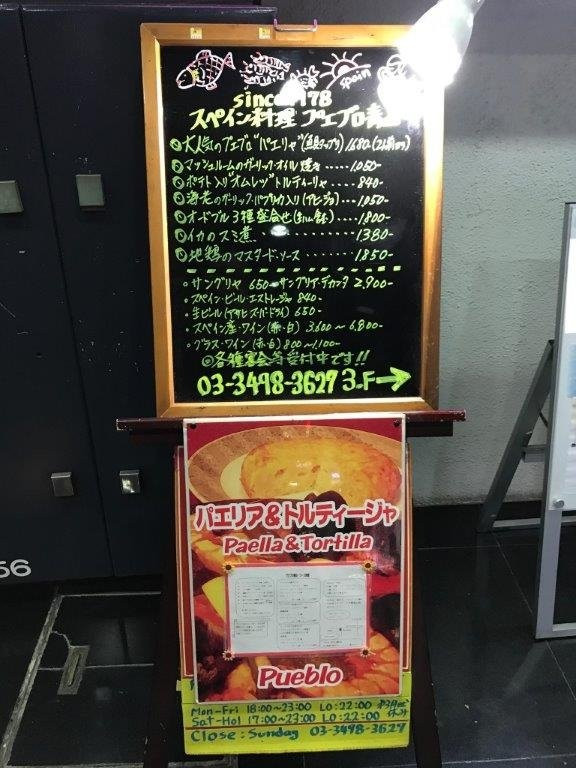 spain
since 1978
スペイン料理 プエブロ青山
大人気のプエブロ"パエリャ"(魚貝タップリ) 1680(2人前より)
マッシュルームのガーリック・オイル焼き ..... 1,050-
ポテト入り"オムレツ"トルティーヤ ..... 840-
海老のガーリック・パプリカ入り(アヒージョ) .... 1,050
オードブル 3種盛合せ(生ハム含む) .... 1,800-
イカのスミ煮 ........ 1380-
地鶏のマスタード・ソース ...... 1850-
サングリヤ 650- サングリア・デカンタ 2,900-
スペイン・ビール・エストレージャ 840-
生ビール(アサヒスーパードライ) 650-
スペイン産・ワイン(赤・白) 3,600〜6,800-
グラス・ワイン(赤・白) 800〜1,100-
◎各種宴会等受付中です!!
03-3498-3627 3.F→
パエリア&トルティージャ
Paella & Tortilla
Pueblo
Mon-Fri 18:00~23:00 LO:22:00
Sat-Hol 17:00~23:00 LO:22:00
Close: Sunday 03-3498-3627
66